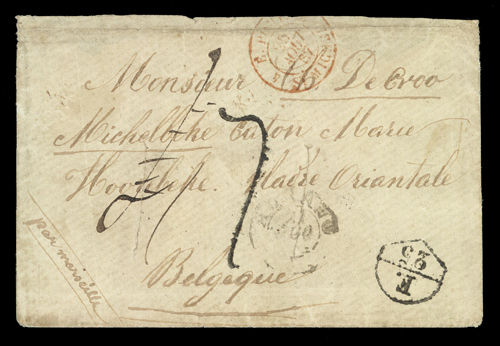 Monsieur De Croo
Michelbeke Canton Marie
Hoorebeke. Fladre Oriantale
Belgeque
par marseille
F.
25